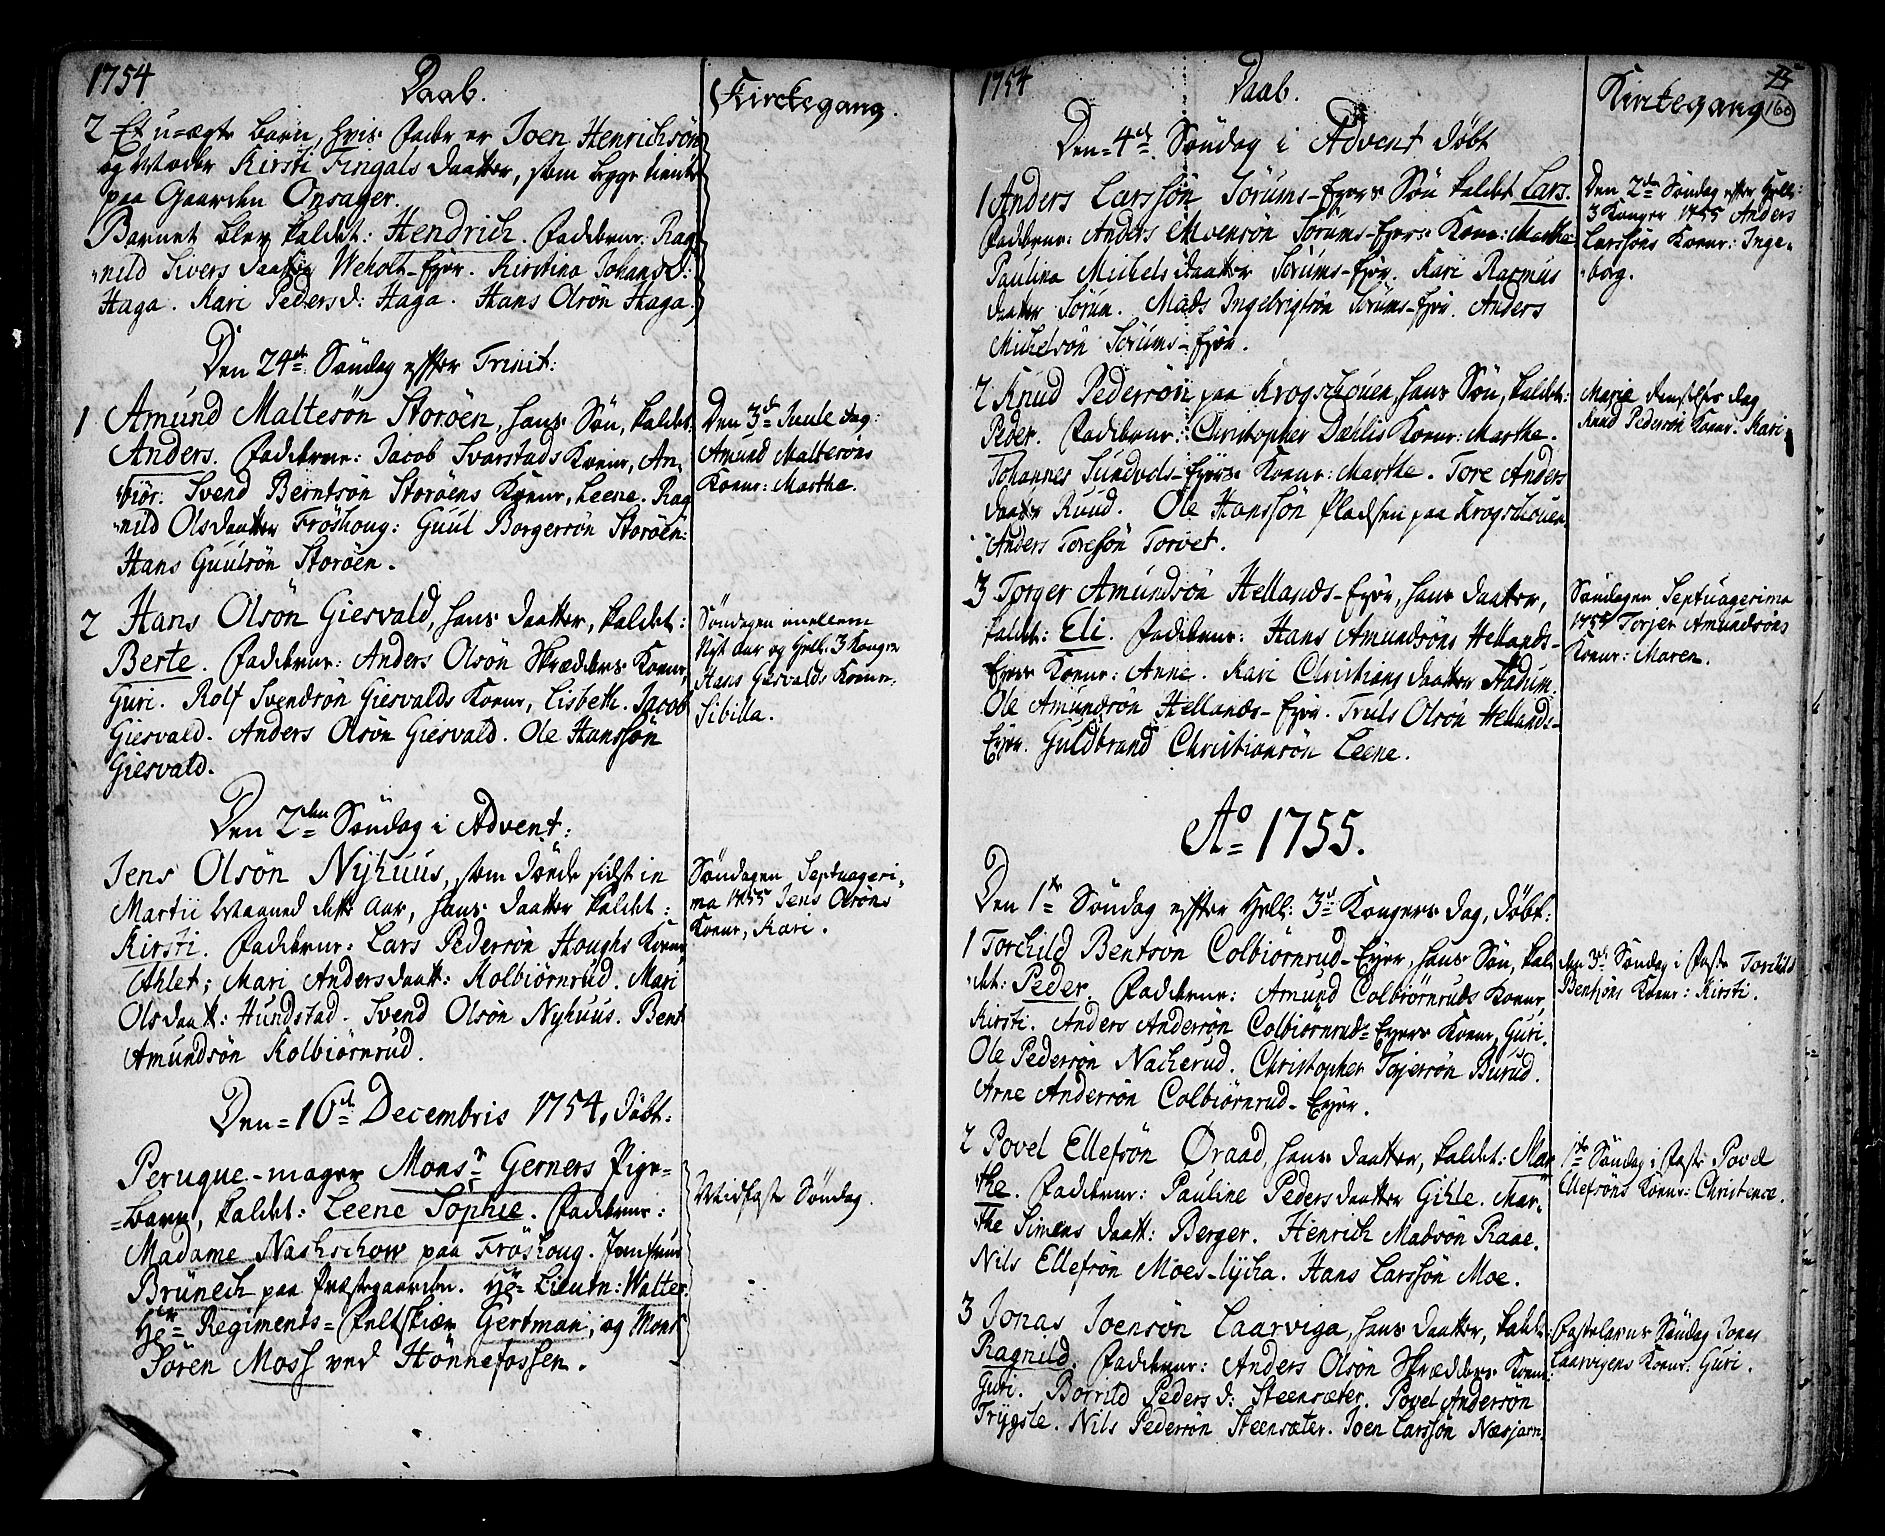 1754 Daab. Kirckegang.
2 Et u-ægte barn, hvis Fader er Joen Henrichsön
og Moder Kirsti Fingals daatter, som begge tiente
paa Gaarden Onsager.
Barnet blev kaldet: Hendrich. Fadderne: Rag-
nild Sivers daatter Weholt-Eyer. Kirstina Johansd:
Haga. Kari Pedersd: Haga. Hans Olsön Haga.
Den 24de Söndag effter Trinit:
1 Amund Maltesön Storöen, hans Sön, kaldet
Anders. Fadderne: Jacob Svarstads Kone, An-
biör. Svend Berntsön Storöens Kone, Leene. Rag-
nild Olsdaatter Fröshoug: Guul Borgersön Storöen:
Hans Guulsön Storöen.
Den 3de Juule dag:
Amund Maltesöns
Kone: Marthe.
2 Hans Olsön Giesvald, hans daatter, kaldet:
Berte. Fadderne: Anders Olsön Skrædders Kone,
Guri. Rolf Svendsön Giesvalds Kone, Lisbeth. Jacob
Giesvald. Anders Olsön Giesvald. Ole Hanssön
Giesvald.
Söndagen imellem
Nyt Aar og Hell. 3 Konger
Hans Giesvalds Kone:
Sibilla.
Den 2den Söndag i Advent:
Jens Olsön Nyhuus, som döede sidst in
Martii Maaned dette Aar, hans daatter kaldet:
Kirsti. Fadderne: Lars Pedersön Houghs Kone
Athlet; Mari Anders daatt: Kolbiörnrud. Mari
Olsdaatt: Hundstad. Svend Olsön Nyhuus. Bent
Amundsön Kolbiörnrud.
Söndagen Septuagesi-
ma 1755 Jens Olsöns
Kone, Kari.
Den 16de Decembris 1754, döbt:
Peruque-mager Monsr Gerners Pige-
barn, kaldet: Leene Sophie. Fadderne:
Madame Nashschow paa Fröshoug. Jomfrue
Brünech paa Præstegaarden. Hr Lieutn: Walter.
Hr Regiments-Feltskiær Gertman, og Monsr
Sören Moss ved Hönnefossen.
Midfaste Söndag.
1754 Daab. Kirckegang 160
Den 4de Söndag i Advent döbt
1 Anders Larssön Sörums-Eyers Sön kaldet Lars.
Fadderne: Anders Evensön Sörums-Eyers Kone: Marthe
Paulina Michelsdaatter Sörums-Eyer. Kari Rasmus
daatter Sörum. Mads Ingebrigtsön Sörums-Eyer. Anders
Michelsön Sörums-Eyer.
Den 2den Söndag effter Hell:
3 Konger 1755 Anders
Larssöns Kone: Inge-
borg.
2 Knud Pedersön paa Krogschouen, hans Sön, kaldet:
Peder. Fadderne: Christopher Dæhlis Kone: Marthe.
Johannes Sundvols-Eyers Kone: Marthe. Tore Anders
daatter Ruud. Ole Hanssön Pladsen paa Krogschouen.
Anders Toresön Torvet.
Marie
Knud Pedersön Kone: Kari
3 Torger Amundsön Hellands-Eyer, hans daatter,
kaldet: Eli. Fadderne: Hans Amundsöns Hellands-
Eyers Kone: Anne. Kari Christians daatter Aadum.
Ole Amundsön Hellands-Eyer. Truls Olsön Hellands-
Eyer. Guldbrand Christiansön Leene.
Söndagen Septuagesima
1755 Torjer Amundsöns
Kone: Maren.
Ao 1755.
Den 1te Söndag effter Hell: 3de Kongers dag, döbt:
1 Torchild Bentson Colbiörnrud-Eyer, hans Sön, kal-
det: Peder. Fadderne: Amund Colbiörnruds Kone,
Kirsti. Anders Andersön Colbiörnrud-Eyers Kone, Guri.
Ole Pedersön Nacherud. Christopher Tojersön Burud.
Arne Andersön Colbiörnrud-Eyer.
den 3de Söndag i Faste Torchild
Bentsöns Kone: Kirsti.
2 Povel Ellefsön Øraad, hans daatter, kaldet: Mar-
the. Fadderne: Pauline Pedersdaatter Gihle. Mar-
the Simens daatt: Berger. Henrich Madsön Raae.
Nils Ellefsön Moes-lycka. Hans Larssön Moe.
1te Söndag i Faste Povel
Ellefsöns Kone: Christence.
3 Jonas Joensön Laarviga, hans daatter, kaldet:
Ragnild. Fadderne: Anders Olsön Skrædders Kone:
Guri. Borrild Pedersd: Steensæter. Povel Andersön
Trygsle. Nils Pedersön Steensæter. Joen Larssön Næsjarn.
Fastelavns Söndag Jonas
Laarvigens Kone: Guri.